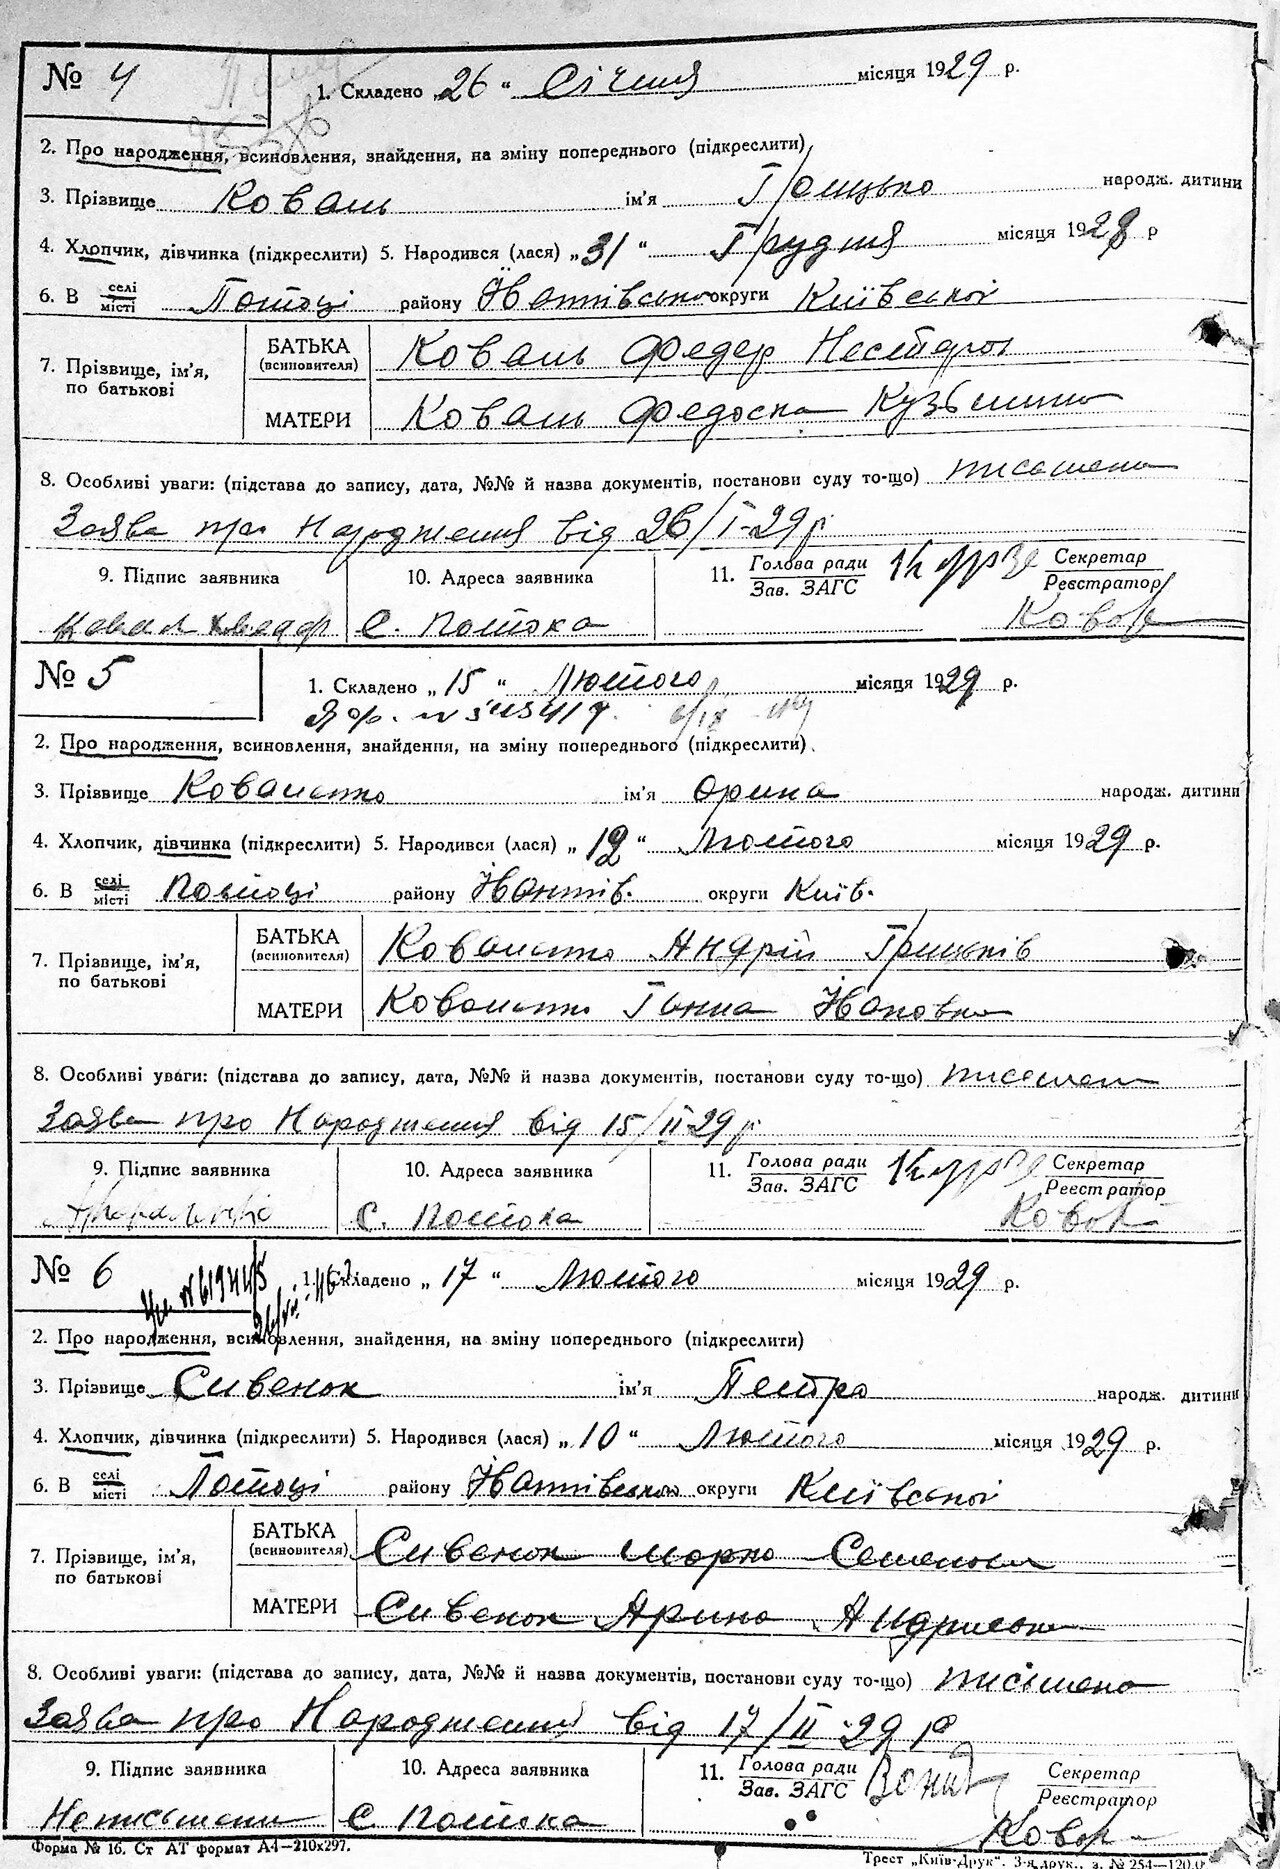 № 4
1. Складено „26" Січня місяця 1929 р.
2. Про народження, всиновлення, знайдення, на зміну попереднього (підкреслити)
3. Прізвище Коваль ім'я Грицько народж. дитини
4. Хлопчик, дівчинка (підкреслити) 5. Народився (лася) „31" Грудня місяця 1928 р
6. В селі/місті Потоці району Кагарл округи Київської
7. Прізвище, ім'я, по батькові
БАТЬКА (всиновителя) Коваль Федер Нестеров
МАТЕРИ Коваль Федоска Кузьмина
8. Особливі уваги: (підстава до запису, дата, №№ й назва документів, постанови суду то-що) писемна
Заява про Народження від 26/I-29 р
9. Підпис заявника 10. Адреса заявника 11. Голова ради/Зав. ЗАГС Секретар/Реєстратор
Ковал Хведор С. Потока
№ 5
1. Складено „15" Лютого місяця 1929 р.
2. Про народження, всиновлення, знайдення, на зміну попереднього (підкреслити)
3. Прізвище Коваленко ім'я Орина народж. дитини
4. Хлопчик, дівчинка (підкреслити) 5. Народився (лася) „12" Лютого місяця 1929 р.
6. В селі/місті Потоці району округи Київ.
7. Прізвище, ім'я, по батькові
БАТЬКА (всиновителя) Коваленко Андрій Грицьків
МАТЕРИ Коваленко Ганна
8. Особливі уваги: (підстава до запису, дата, №№ й назва документів, постанови суду то-що) писемна
Заява про Народження від 15/II-29 р
9. Підпис заявника 10. Адреса заявника 11. Голова ради/Зав. ЗАГС Секретар/Реєстратор
С. Потока
№ 6
1. Складено „17" Лютого місяця 1929 р.
2. Про народження, всиновлення, знайдення, на зміну попереднього (підкреслити)
3. Прізвище Сивенок ім'я Петро народж. дитини
4. Хлопчик, дівчинка (підкреслити) 5. Народився (лася) „10" Лютого місяця 1929 р.
6. В селі/місті Потоці району округи Київської
7. Прізвище, ім'я, по батькові
БАТЬКА (всиновителя) Сивенок Марко Семенов
МАТЕРИ Сивенок Арина Андриевна
8. Особливі уваги: (підстава до запису, дата, №№ й назва документів, постанови суду то-що) писімена
Заява про Народження від 17/II-29 р
9. Підпис заявника 10. Адреса заявника 11. Голова ради/Зав. ЗАГС Секретар/Реєстратор
Неписьмени С. Потока
Форма № 16. Ст АТ формат А4—210x297.
Трест „Київ-Друк". 3-я друк., з. № 254—120.0